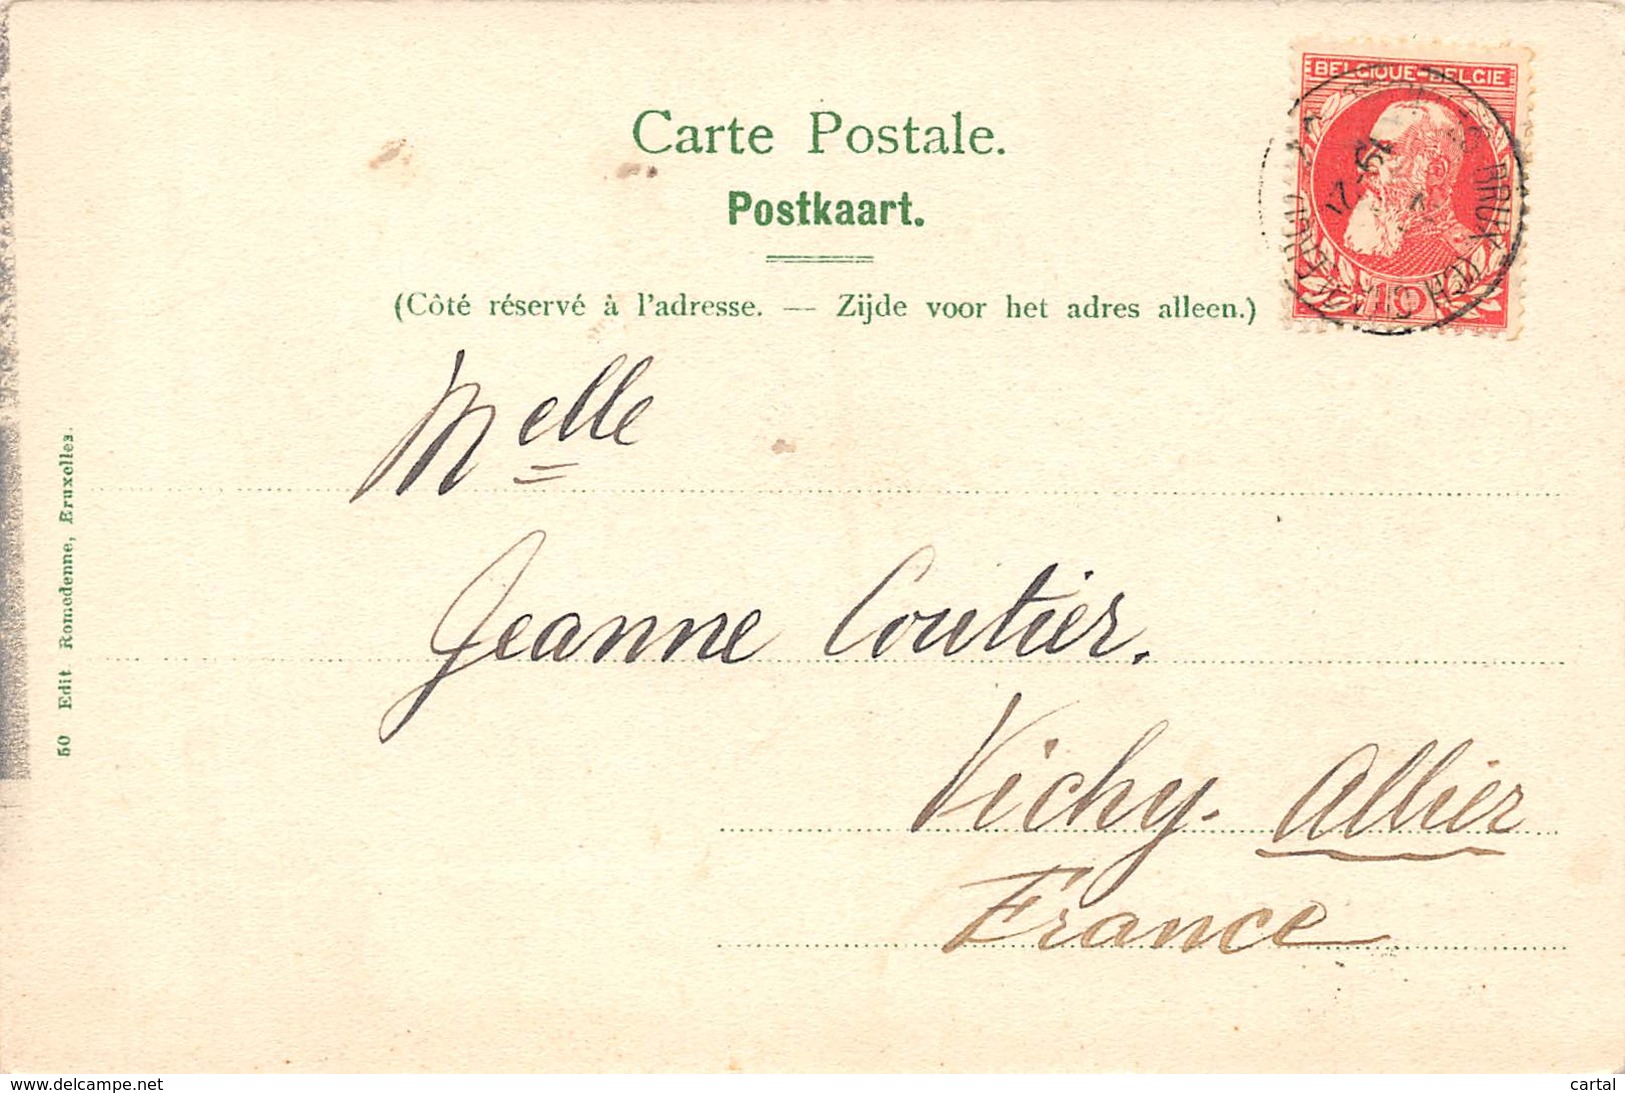 BELGIQUE-BELGIE
10
Carte Postale.
Postkaart.
(Côté réservé à l'adresse. — Zijde voor het adres alleen.)
Melle
Jeanne Coutier.
Vichy. Allier
France
50 Edit Romedenne, Bruxelles.
www.delcampe.net
cartal